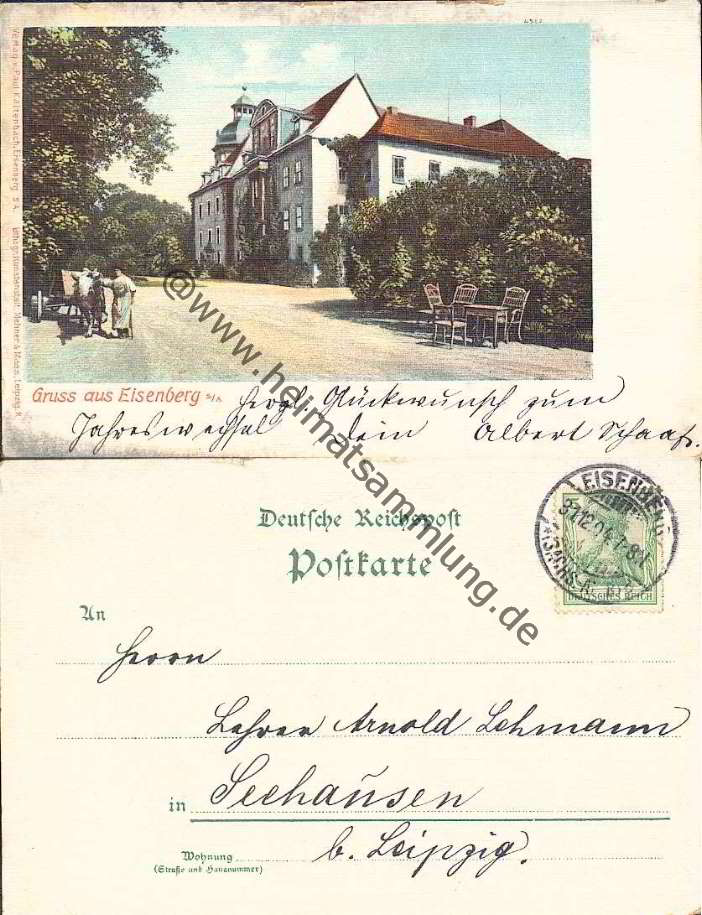 4562
Verlag v. Paul Kaltenbach, Eisenberg S. A.
Gruss aus Eisenberg S/A
herzl. Glückwunsch zum
Jahreswechsel Dein Albert Schaaf.
©www.heimatsammlung.de
Deutsche Reichspost
Postkarte
An
Herrn
Lehrer Arnold Lehmann
in Seehausen
Wohnung b. Leipzig.
(Straße und Hausnummer)
EISENBERG
31.12.04. 7-8
5
DEUTSCHES REICH